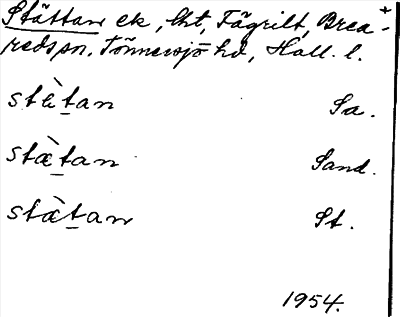 Stättan ek, lht, Fägrilt, Brea-+
redspn. Tönnersjö hd, Hall. l.
stètan Sa.
stæ̀tan Sand.
stæ̀tan St.
1954.